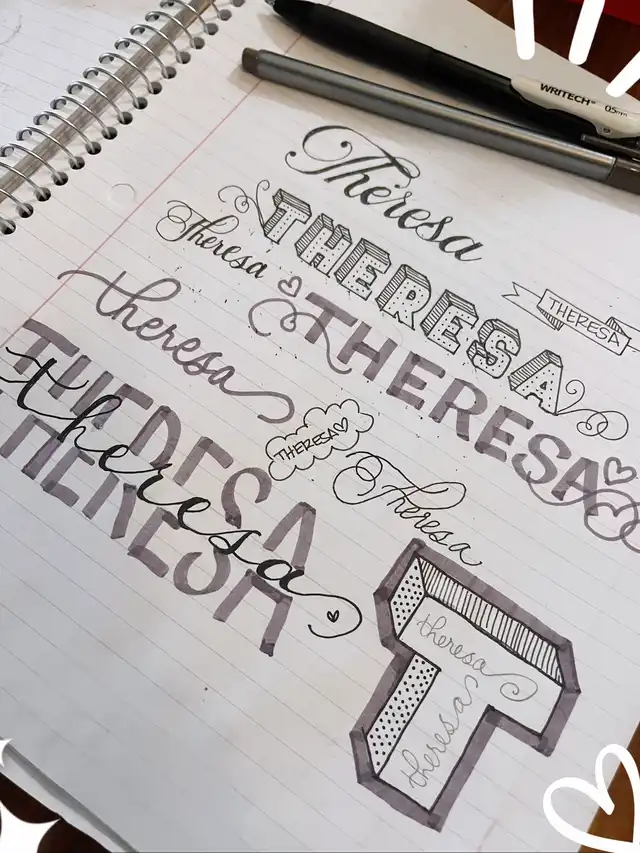 WRITECH™ 0.5mm
Theresa
THERESA
Theresa
THERESA
THERESA
theresa
THERESA
theresa
THERESA
Theresa
T
theresa
theresa